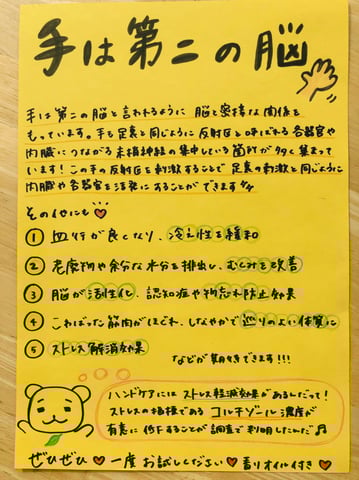 手は第二の脳
手は第二の脳と言われるように 脳と密接な関係を
もっています。手も足裏と同じように反射区と呼ばれる各器官や
内臓につながる末梢神経の集中している箇所が多く集まって
います！この手の反射区を刺激することで 足裏の刺激と同じように
内臓や各器官を活発にすることができます
その他にも
① 血行が良くなり、冷え性を緩和
② 老廃物や余分な水分を排出し、むくみを改善
③ 脳が活性化、認知症や物忘れ防止効果
④ こわばった筋肉がほぐれ、しなやかで巡りのよい体質に
⑤ ストレス解消効果
などが期待できます!!!
ハンドケアには ストレス軽減効果があるんだって！
ストレスの指標である コルチゾール濃度が
有意に低下することが調査で判明したんだ♫
ぜひぜひ♥一度お試しください♥香りオイル付き♥